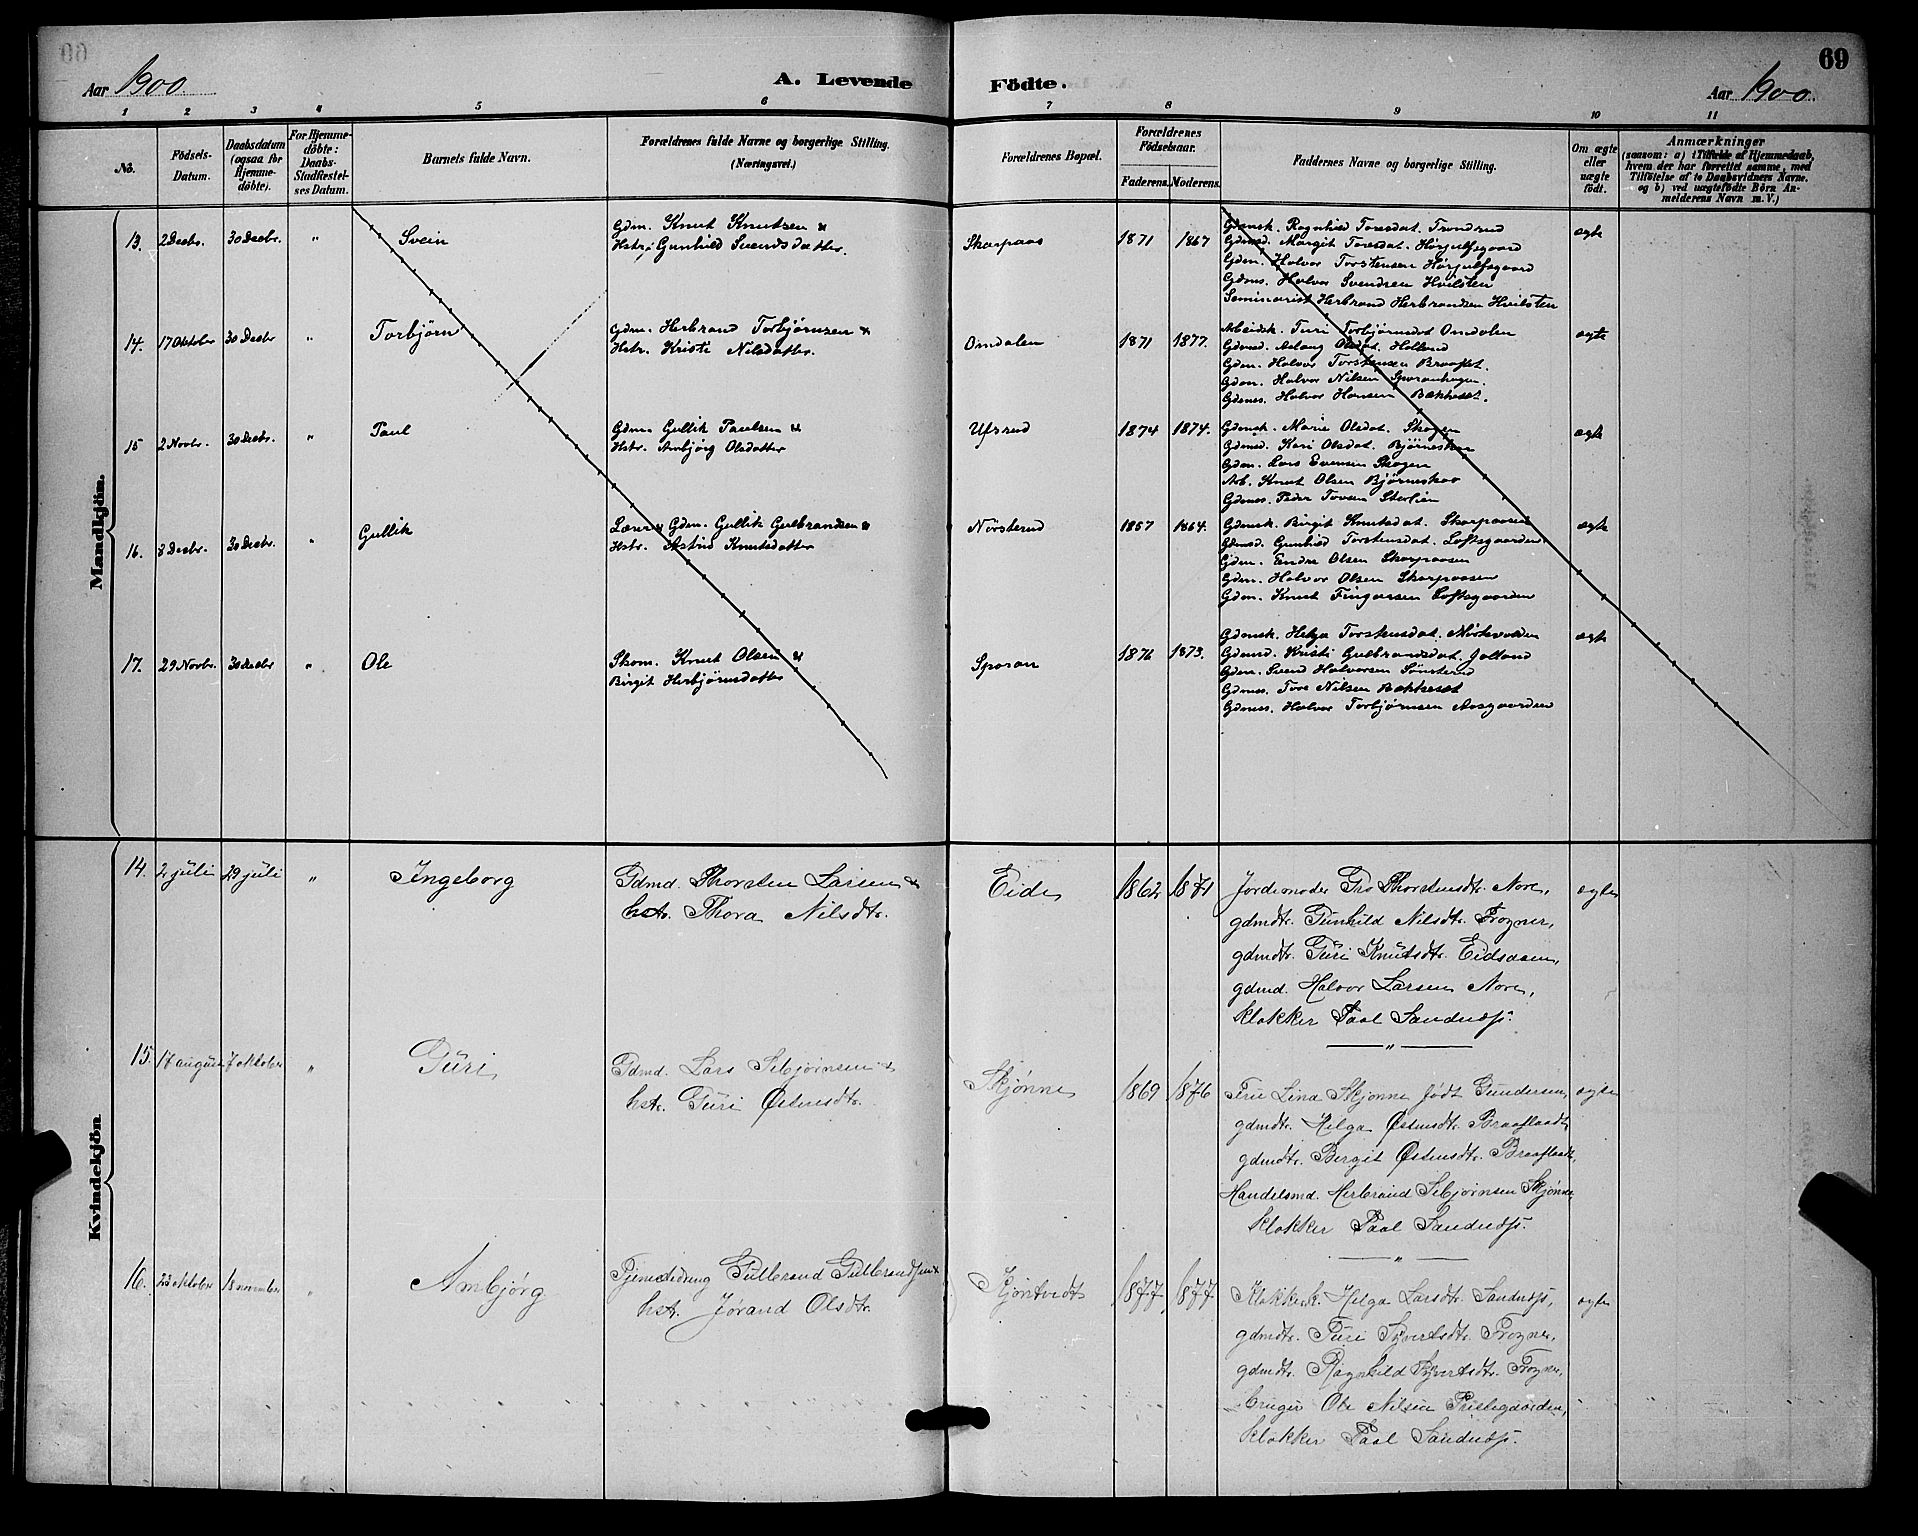 69
Aar 1900.
A. Levende Födte.
Aar 1900.
1 2 3 4 5 6 7 8 9 10 11
No.
Födsels-Datum.
Daabsdatum (ogsaa for Hjemmedöbte).
For Hjemmedöbte: Daabs-Stadfæstelses Datum.
Barnets fulde Navn.
Forældrenes fulde Navne og borgerlige Stilling. (Næringsvei.)
Forældrenes Bopæl.
Forældrenes Födselsaar.
Faderens. Moderens.
Faddernes Navne og borgerlige Stilling.
Om ægte eller uægte födt.
Anmærkninger
(saasom: a) i Tilfælde af Hjemmedaab, hvem der har forrettet samme, med Tilföielse af to Daabsvidners Navne, og b) ved uægtefödte Börn Anmelderens Navn m. V.)
Mandkjön.
13. 2 Decbr. 30 Decbr. " Svein
Gdm. Knut Knutsen &
Hstr. Gunhild Svendsdatter.
Skarpaas 1871 1867
Gdmsk. Ragnhild Toresdat. Trondrud
Gdmsd. Margit Toresdat. Hørjulfsgaard
Gdm. Halvor Torstensen Hørjulfsgaard
Gdms. Halvor Svendsen Hvilsten
Seminarist Herbrand Herbrandsen Hvilsten
ægte
14. 17 Oktober 30 Decbr " Torbjørn
Gdm. Herbrand Torbjørnsen &
Hstr. Kristi Nilsdatter.
Omdalen 1871 1877.
Arbeidsk. Turi Torbjørnsdat Omdalen
Gdmsd. Aslaug Olsdat. Holland
Gdm. Halvor Torstensen Braaflat.
Gdm. Halvor Nilsen Sporanhagen.
Gdms. Halvor Hansen Bækkeset.
ægte
15 2 Novbr. 30 Decbr. " Paul
Gdm. Gullik Paulsen &
Hstr. Ambjørg Olsdatter
Ufsrud 1874 1874.
Gdmsk. Marie Olsdat. Skogen
Gdmsd. Kari Olsdat. Bjørneskar
Gdm. Lars Evensen Skogen
Arb. Knut Olsen Bjørneskar
Gdms. Peder Tovsen Sterlien
ægte
16. 8 Decbr. 30 Decbr. " Gullik
Lærer & Gdm. Gullik Gulbrandsen &
Hstr. Astrid Knutsdatter
Nørsterud 1857 1864.
Gdmsk. Birgit Knutsdat. Skarpaasen
Gdmsd. Gunhild Torstensdat. Loftsgaarden
Gdm. Endre Olsen Skarpaasen
Gdm. Halvor Olsen Skarpaasen
Gdm. Knut Fingarsen Loftsgaarden
ægte
17. 29 Novbr. 30 Decbr " Ole
Skom. Knut Olsen &
Birgit Herbjørnsdatter
Sporan 1876 1873.
Gdmsk. Helga Torstensdat. Mørtevolden
Gdmsd. Kristi Gulbrandsdat. Jolland
Gdm. Svend Halvorsen Sønsterud
Gdms. Tore Nilsen Bækkeset
Gdms. Halvor Torbjørnsen Aasgaarden
ægte
Kvindekjön
14. 2 juli 29 juli " Ingeborg
Gdmd. Thorsten Larsen &
hstr. Thora Nilsdtr.
Eide 1862 1871
Jordemoder Gro Thorstensdtr. Nore,
gdmdtr. Gunhild Nilsdtr. Frogner,
gdmdtr. Guri Knutsdtr. Eidsaasen,
gdmd. Halvor Larsen Nore,
klokker Paal Sandnæss.
ægte
15. 17 august 7 oktober " Guri
Gdmd. Lars Sebjørnsen &
hstr. Guri Østensdtr.
Skjønne 1869 1876
Frue Lina Skjønne født Gundersen,
gdmdtr. Helga Østensdtr. Braaflaadt,
gdmdtr. Bergit Østensdtr. Braaflaadt,
Handelsmd. Herbrand Sebjørnsen Skjønne,
klokker Paal Sandnæss.
ægte
16. 23 oktober 18 november " Ambjørg
Tjenestedreng Gulbrand Gulbrandsen &
hstr. Jørand Olsdtr.
Kjøntvedt 1877 1877
Klokkerk. Helga Larsdtr. Sandnæss,
gdmdtr. Turi Syvertsdtr. Frogner,
gdmdtr. Ragnhild Syvertsdtr. Frogner,
bruger Ole Nilsen Prestegaarden,
klokker Paal Sandnæss.
ægte